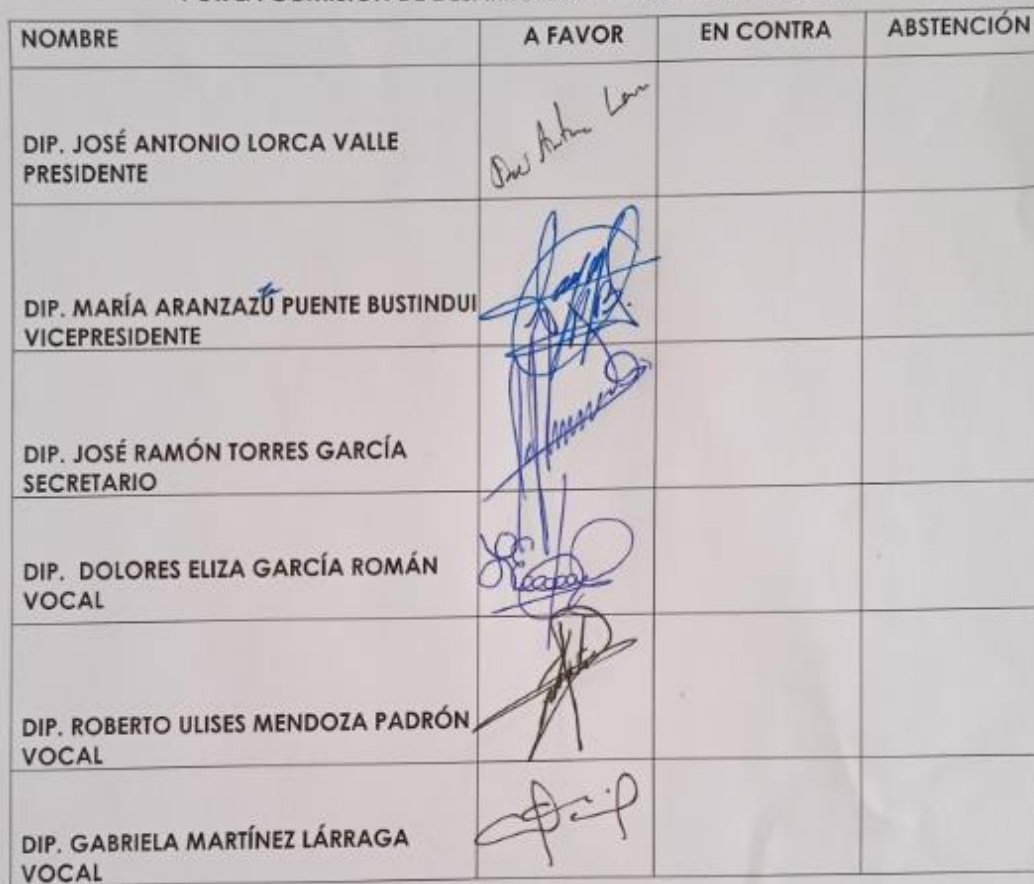 NOMBRE A FAVOR EN CONTRA ABSTENCIÓN
DIP. JOSÉ ANTONIO LORCA VALLE
PRESIDENTE
DIP. MARÍA ARANZAZÚ PUENTE BUSTINDUI
VICEPRESIDENTE
DIP. JOSÉ RAMÓN TORRES GARCÍA
SECRETARIO
DIP. DOLORES ELIZA GARCÍA ROMÁN
VOCAL
DIP. ROBERTO ULISES MENDOZA PADRÓN
VOCAL
DIP. GABRIELA MARTÍNEZ LÁRRAGA
VOCAL